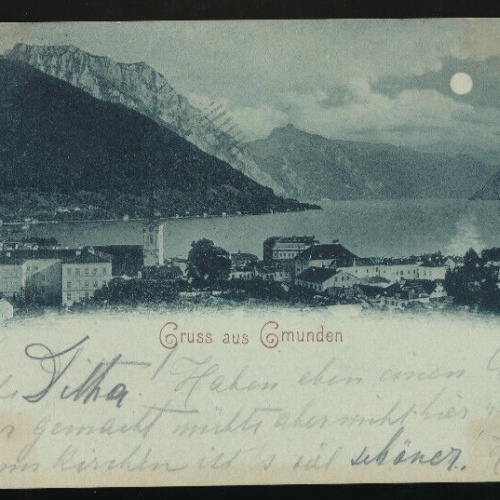 Gruss aus Gmunden
Ditha! Haben eben einen
gemacht möchte aber nicht hier
kirchen ist's viel schöner.